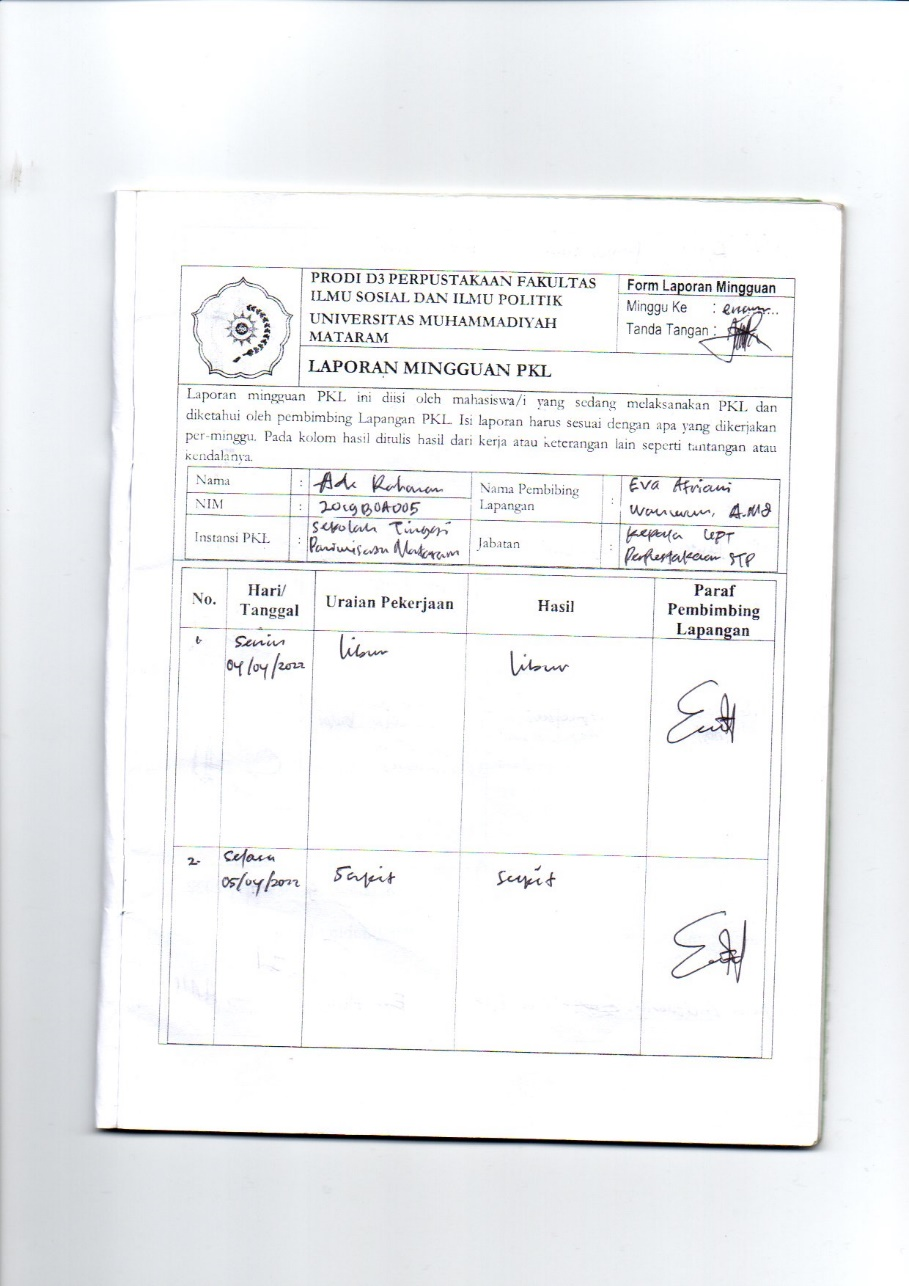 PRODI D3 PERPUSTAKAAN FAKULTAS
ILMU SOSIAL DAN ILMU POLITIK
UNIVERSITAS MUHAMMADIYAH
MATARAM
LAPORAN MINGGUAN PKL
Form Laporan Mingguan
Minggu Ke : enam...
Tanda Tangan :
Laporan mingguan PKL ini diisi oleh mahasiswa/i yang sedang melaksanakan PKL dan
diketahui oleh pembimbing Lapangan PKL. Isi laporan harus sesuai dengan apa yang dikerjakan
per-minggu. Pada kolom hasil ditulis hasil dari kerja atau keterangan lain seperti tantangan atau
kendalanya.
Nama : Ade
NIM : 2019B0A005
Instansi PKL : Sekolah Tinggi
Pariwisata Mataram
Nama Pembibing
Lapangan : Eva Afriani
A.Md
Jabatan : Kepala UPT
Perpustakaan STP
No.
Hari/
Tanggal
Uraian Pekerjaan
Hasil
Paraf
Pembimbing
Lapangan
1. Senin
04/04/2022
libur
libur
2. Selasa
05/04/2022
Sakit
Sakit